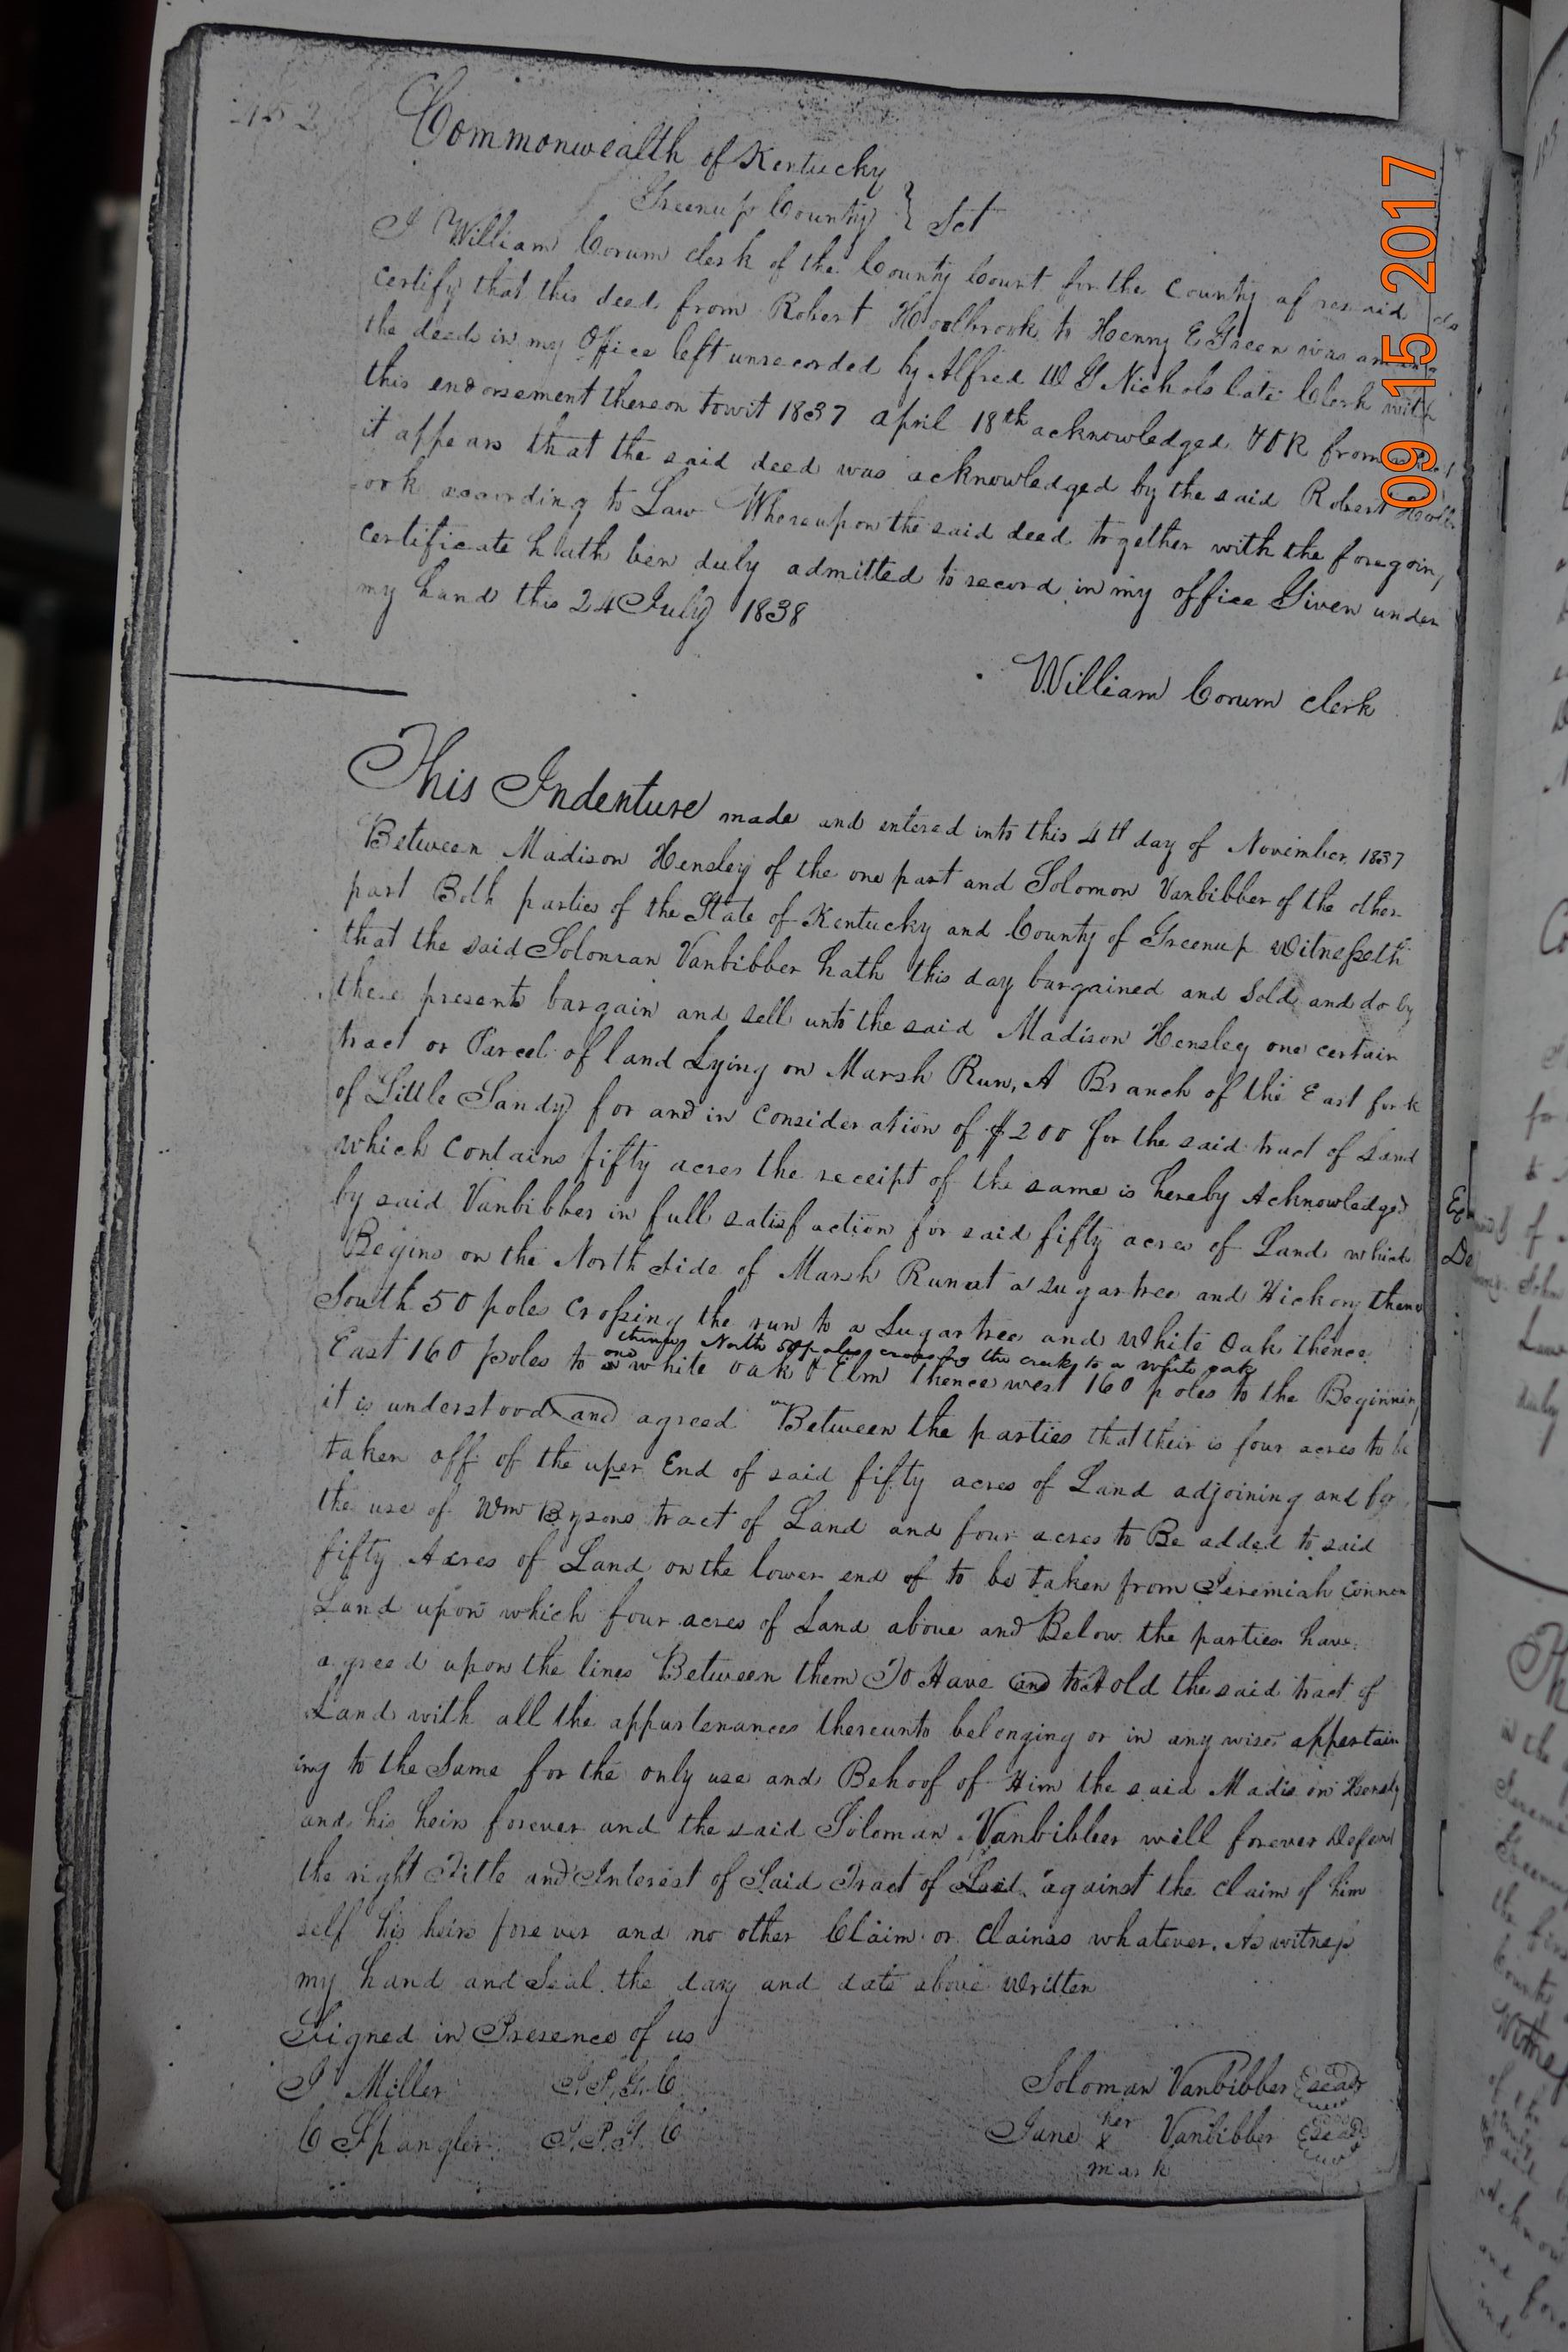 452
Commonwealth of Kentucky
Greenup County } Sct
I William Corum clerk of the County Court for the County aforesaid do
certify that this deed from Robert Hoolbrook to Henry E Green was among
the deeds in my Office left unrecorded by Alfred W G Nichols late Clerk with
this endorsement thereon towit 1837 april 18th acknowledged & OR from
it appears that the said deed was acknowledged by the said Robert Hoolbr
ook according to Law Whereupon the said deed together with the foregoing
certificate hath ben duly admitted to record in my office Given under
my hand this 24 July 1838
William Corum clerk
This Indenture made and entered into this 4th day of November 1837
Between Madison Hensley of the one part and Solomon Vanbibber of the other
part Both parties of the State of Kentucky and County of Greenup Witnesseth
that the said Soloman Vanbibber hath this day bargained and Sold and do by
these presents bargain and sell unto the said Madison Hensley one certain
tract or Parcel of land Lying on Marsh Run, A Branch of the East fork
of Little Sandy for and in consideration of $200 for the said tract of Land
which contains fifty acres the receipt of the same is hereby Acknowledged
by said Vanbibber in full satisfaction for said fifty acres of Land which
Begins on the North Side of Marsh Run at a sugartree and Hickory thence
South 50 poles crossing the run to a Sugartree and White Oak thence
thence North 50 poles crossing the creek to a white oak
East 160 poles to one white oak & Elm thence west 160 poles to the Beginning
it is understood and agreed Between the parties that their is four acres to be
taken off of the uper End of said fifty acres of Land adjoining and for
the use of Wm Brysons tract of Land and four acres to Be added to said
fifty Acres of Land on the lower end of to be taken from Jeremiah
Land upon which four acres of Land above and Below the parties have
agreed upon the lines Between them To Have and to Hold the said tract of
Land with all the appurtenances thereunto belonging or in any wise appertain
ing to the Same for the only use and Behoof of Him the said Madison Hensly
and his heirs forever and the said Soloman Vanbibber will forever Defend
the right Title and Interest of Said Tract of Land against the claim of him
self his heirs forever and no other Claim or claims whatever. As witness
my hand and Seal the day and date above written
Signed in Presence of us
J Miller J.P.G.C. Soloman Vanbibber Seal
C Spangler J.P.G.C Jane her x mark Vanbibber Seal
09 15 2017